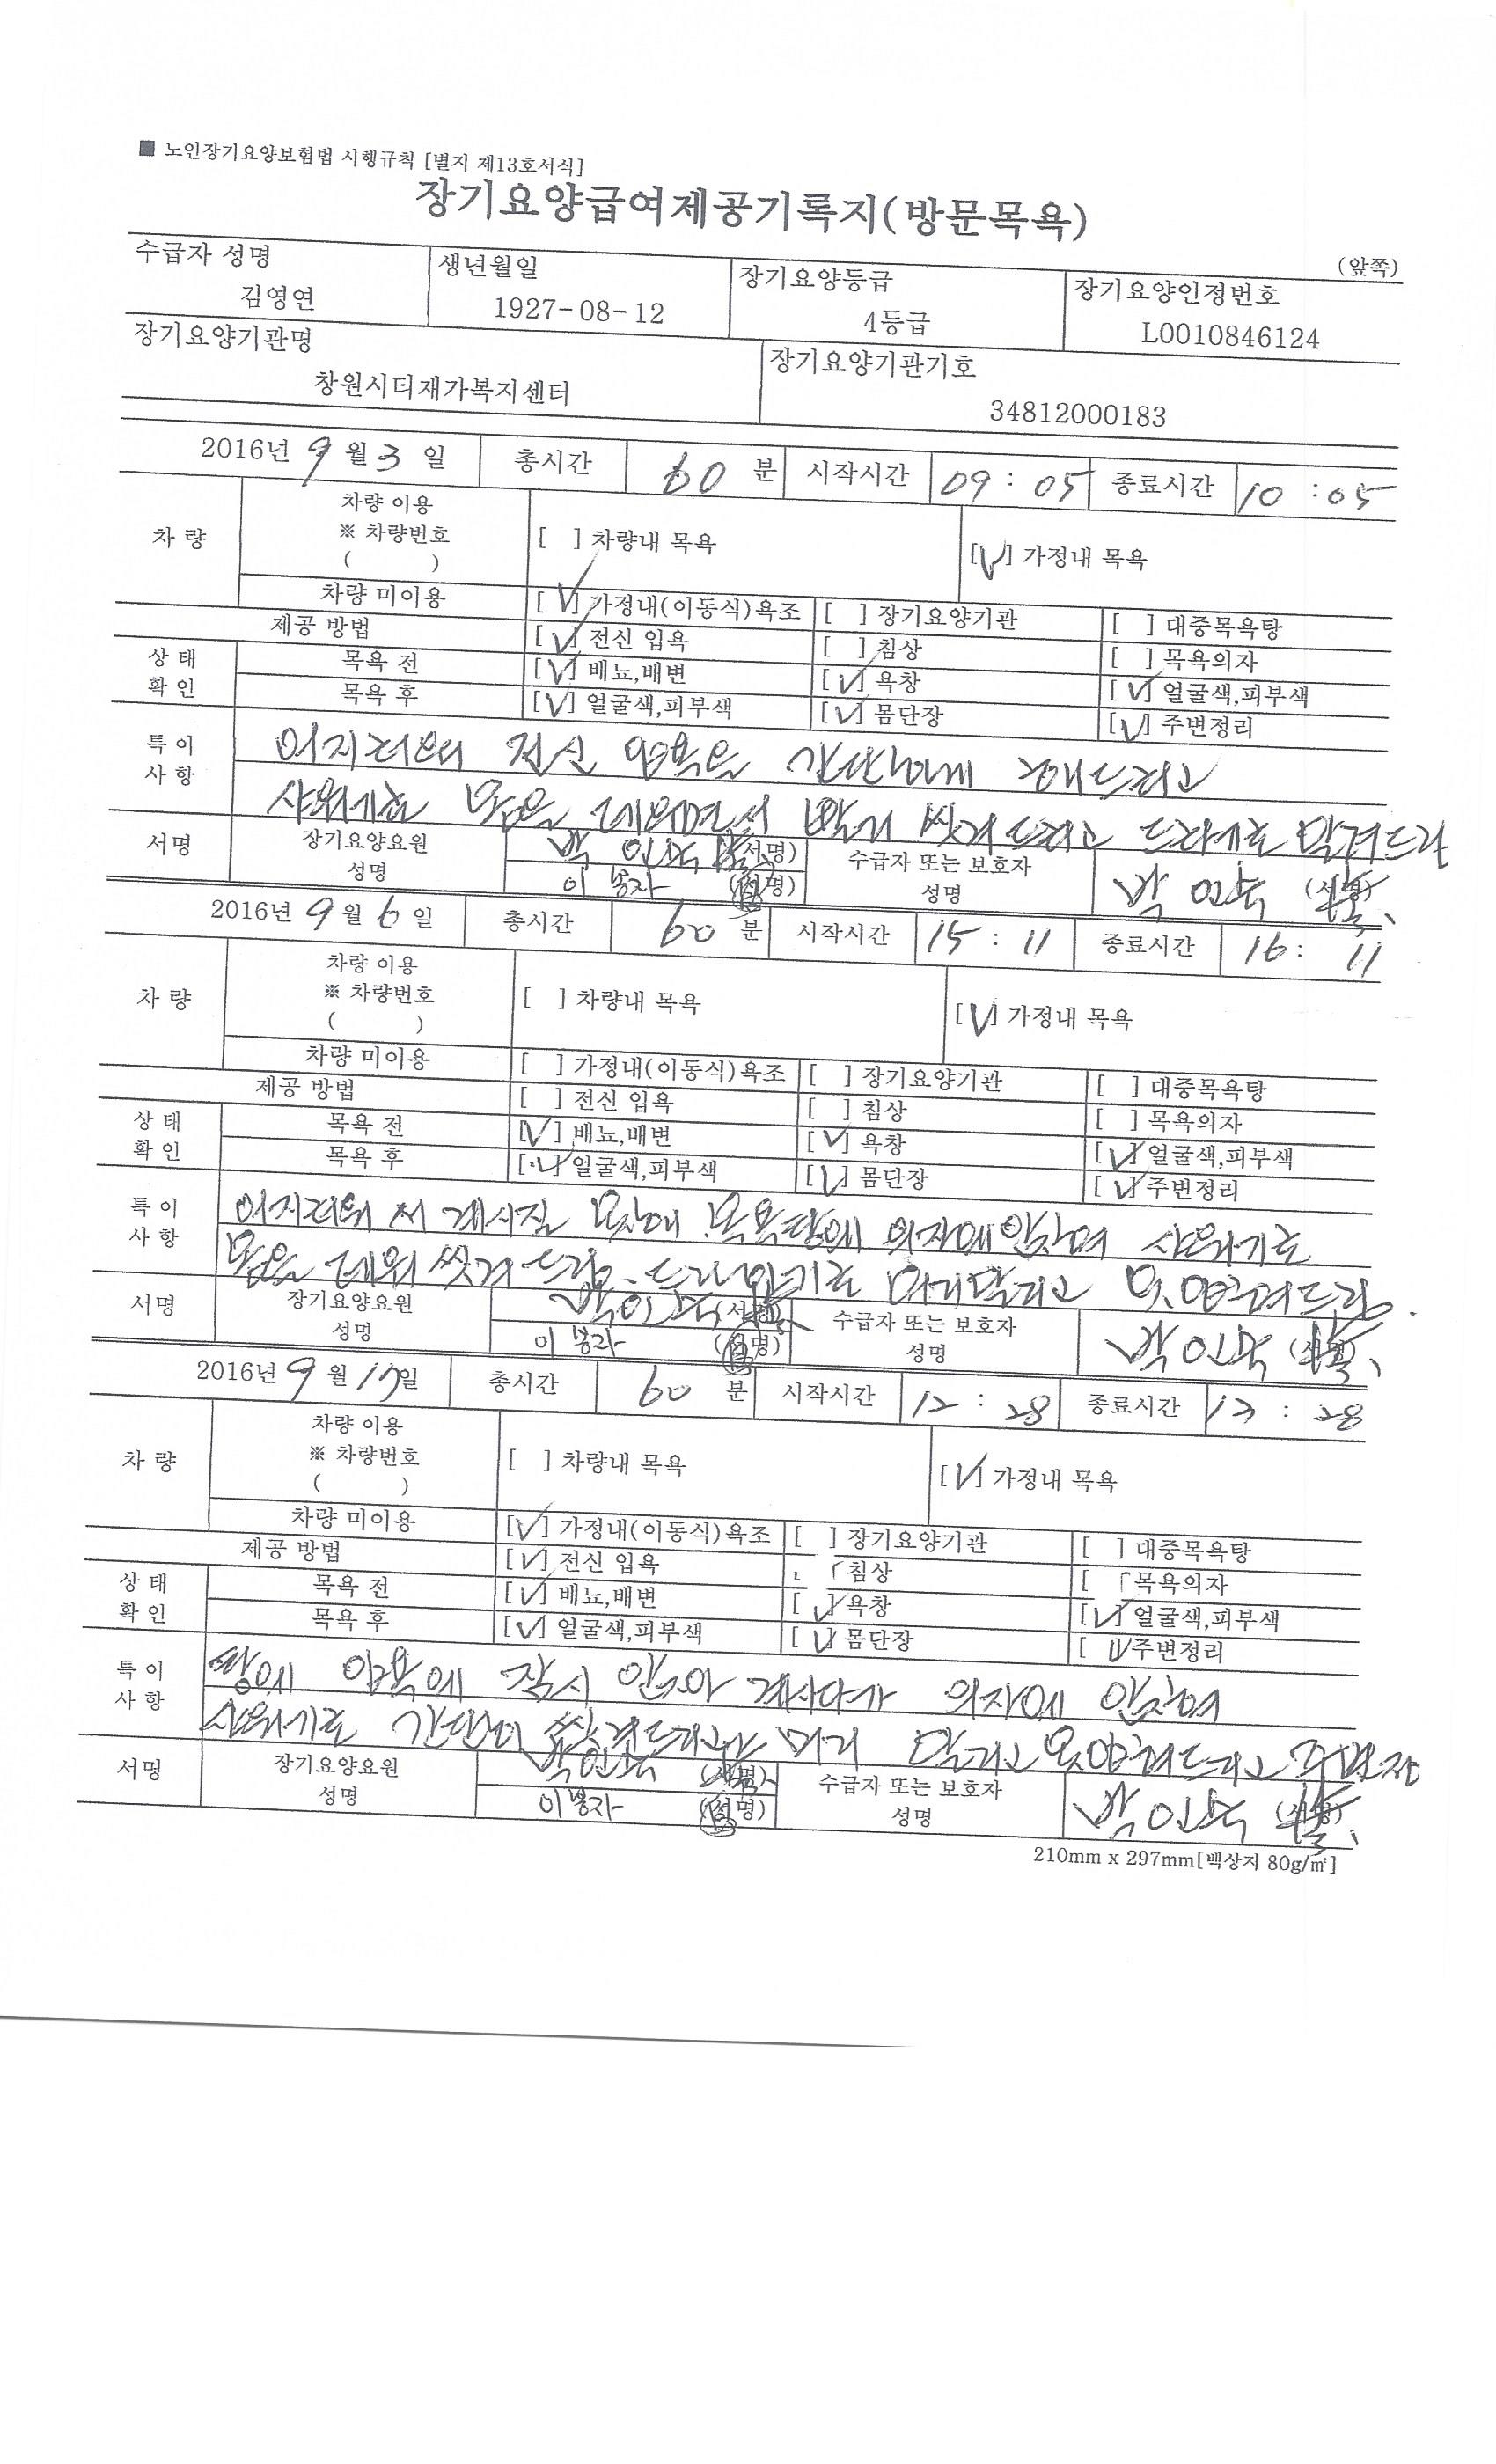 ■ 노인장기요양보험법 시행규칙 [별지 제13호서식]
장기요양급여제공기록지(방문목욕)
(앞쪽)
수급자 성명 생년월일 장기요양등급 장기요양인정번호
김영연 1927-08-12 4등급 L0010846124
장기요양기관명 장기요양기관기호
창원시티재가복지센터 34812000183
2016년 9월 3일 총시간 60 분 시작시간 09 : 05 종료시간 10 : 05
차량 이용
차 량 ※ 차량번호 [ ] 차량내 목욕 [V] 가정내 목욕
( )
차량 미이용 [V] 가정내(이동식)욕조 [ ] 장기요양기관 [ ] 대중목욕탕
제공 방법 [V] 전신 입욕 [ ] 침상 [ ] 목욕의자
상 태 목욕 전 [V] 배뇨,배변 [V] 욕창 [V] 얼굴색,피부색
확 인 목욕 후 [V] 얼굴색,피부색 [V] 몸단장 [V] 주변정리
특 이 전신 입욕은 간단하게 해드리고
사 항 몸을 씻겨드리고
서명 장기요양요원 박인숙 (서명) 수급자 또는 보호자 박인숙 (서명)
성명 이봉자 (서명) 성명
2016년 9월 6일 총시간 60 분 시작시간 15 : 11 종료시간 16 : 11
차량 이용
차 량 ※ 차량번호 [ ] 차량내 목욕 [V] 가정내 목욕
( )
차량 미이용 [ ] 가정내(이동식)욕조 [ ] 장기요양기관 [ ] 대중목욕탕
제공 방법 [ ] 전신 입욕 [ ] 침상 [ ] 목욕의자
상 태 목욕 전 [V] 배뇨,배변 [V] 욕창 [V] 얼굴색,피부색
확 인 목욕 후 [V] 얼굴색,피부색 [V] 몸단장 [V] 주변정리
특 이 계시질 못해 목욕탕에 의자에 앉혀 샤워기로
사 항 몸을 데워 씻겨 드림. 드라이기로 머리말리고 옷입혀드림.
서명 장기요양요원 박인숙 (서명) 수급자 또는 보호자 박인숙 (서명)
성명 이봉자 (서명) 성명
2016년 9월 17일 총시간 60 분 시작시간 12 : 28 종료시간 13 : 28
차량 이용
차 량 ※ 차량번호 [ ] 차량내 목욕 [V] 가정내 목욕
( )
차량 미이용 [V] 가정내(이동식)욕조 [ ] 장기요양기관 [ ] 대중목욕탕
제공 방법 [V] 전신 입욕 [ ] 침상 [ ] 목욕의자
상 태 목욕 전 [V] 배뇨,배변 [V] 욕창 [V] 얼굴색,피부색
확 인 목욕 후 [V] 얼굴색,피부색 [V] 몸단장 [V] 주변정리
특 이 탕에 입욕에 잠시 앉아 계시다가 의자에 앉혀
사 항 샤워기로 간단히 머리 말리고 옷입혀드리고
서명 장기요양요원 박인숙 (서명) 수급자 또는 보호자 박인숙 (서명)
성명 이봉자 (서명) 성명
210mm x 297mm[백상지 80g/㎡]